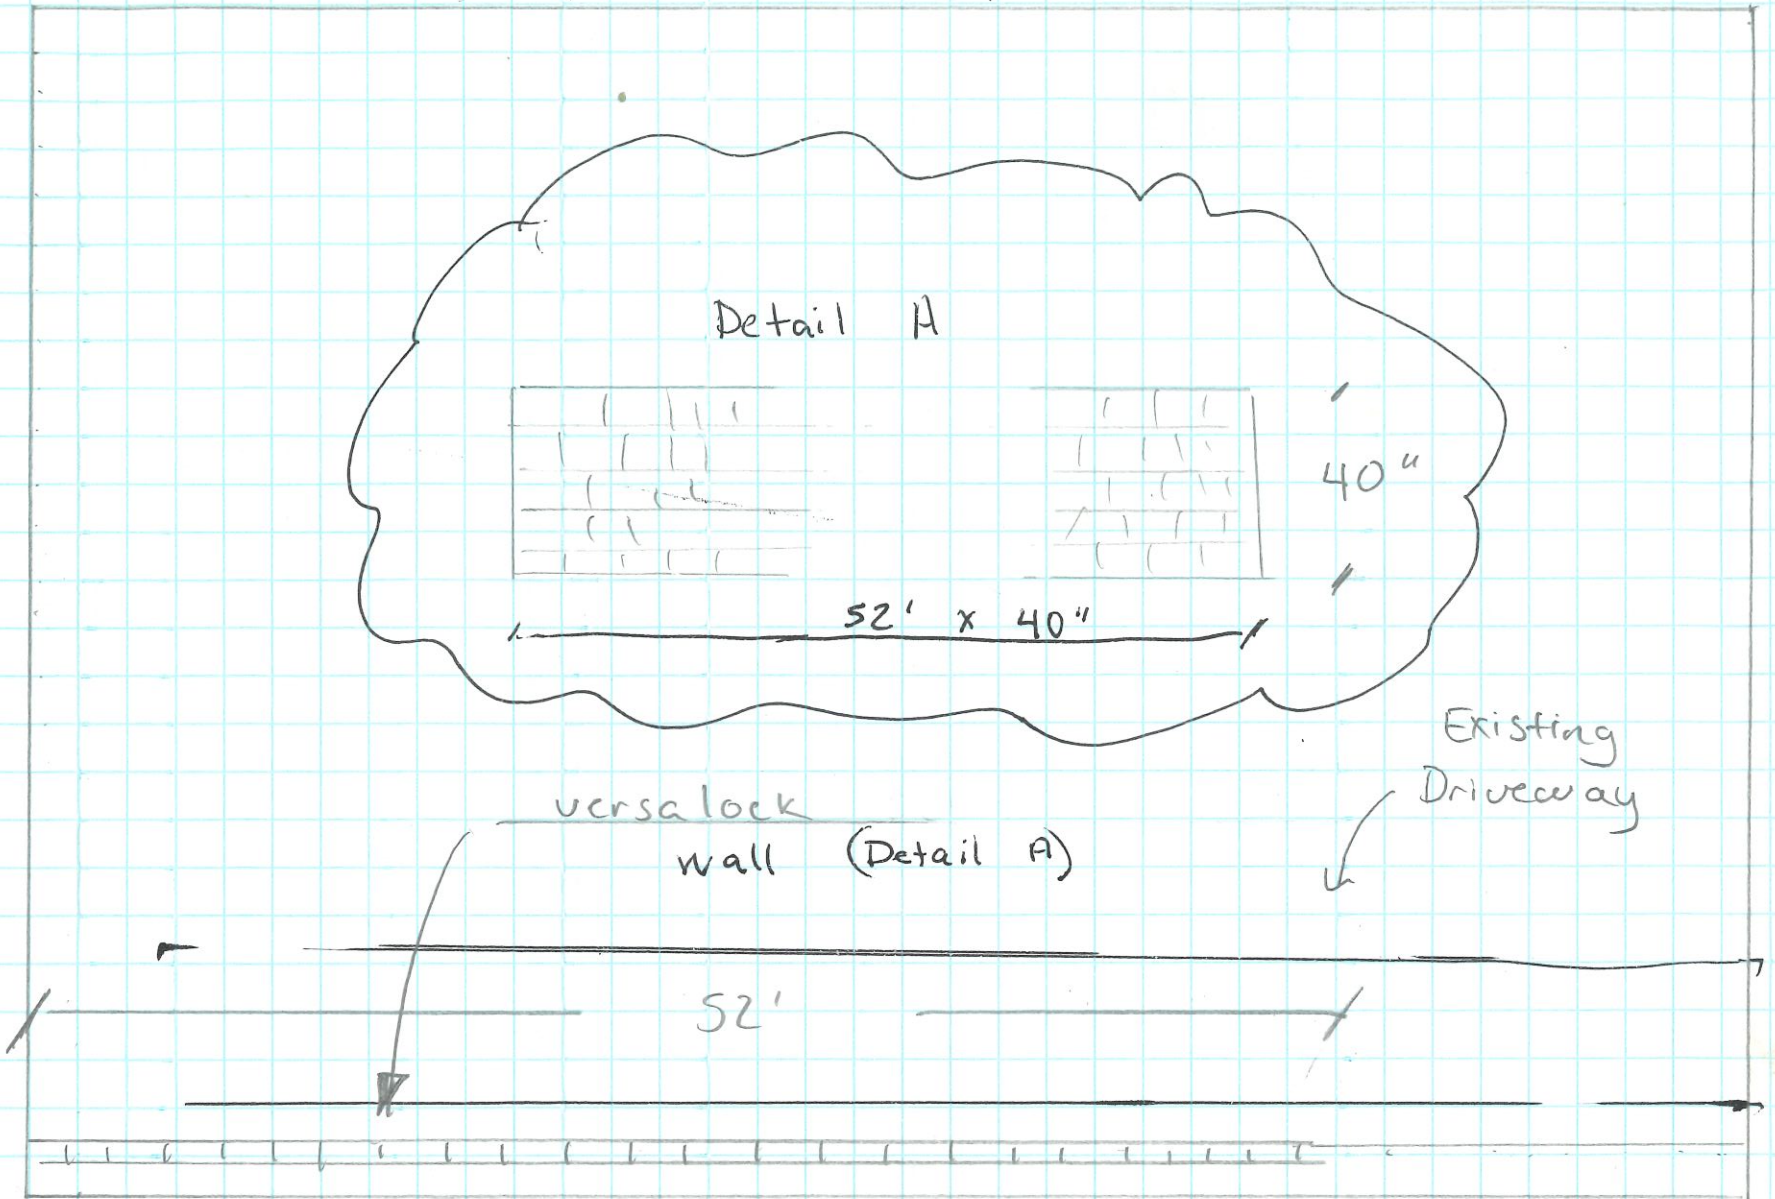 Detail A
40"
52' x 40"
Existing
Driveway
versalock
wall (Detail A)
52'